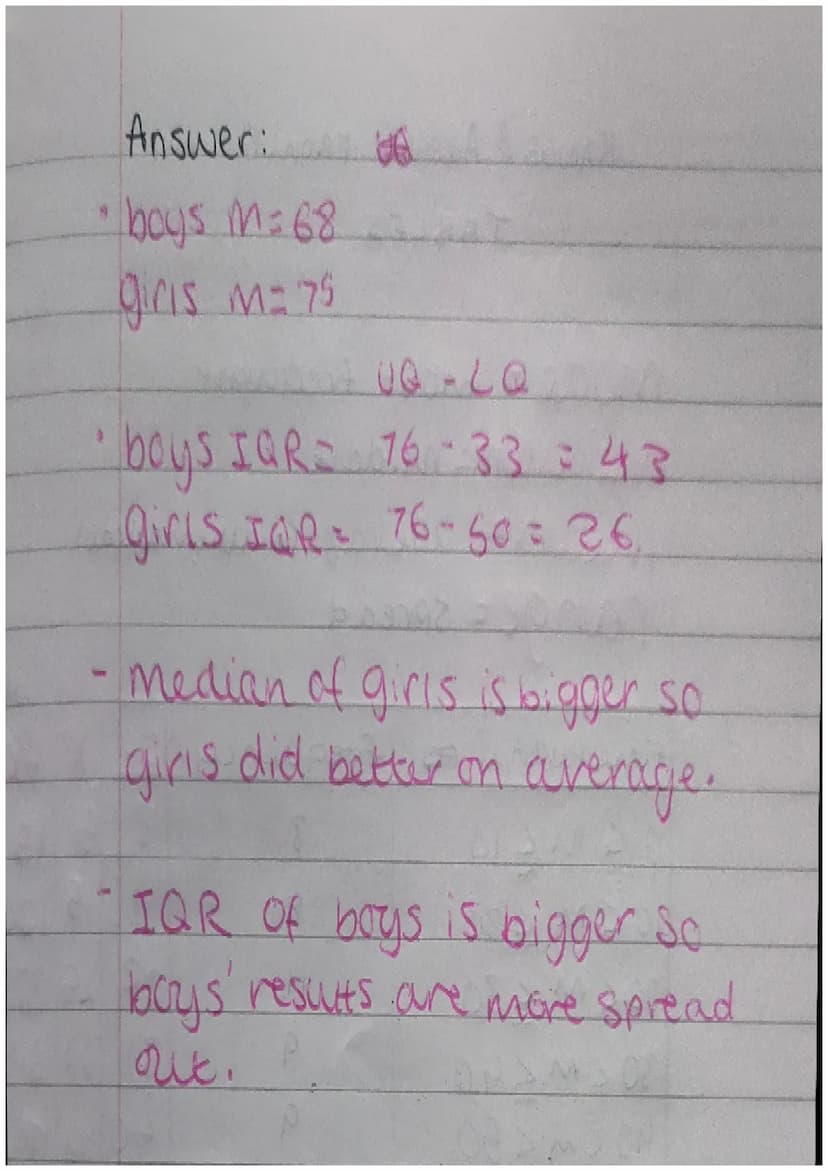 Answer:
• boys M=68
girls M=75
UQ - LQ
• boys IQR= 76 - 33 = 43
girls IQR= 76-50 = 26
- median of girls is bigger so
girls did better on average.
- IQR of boys is bigger so
boys' results are more spread
out.